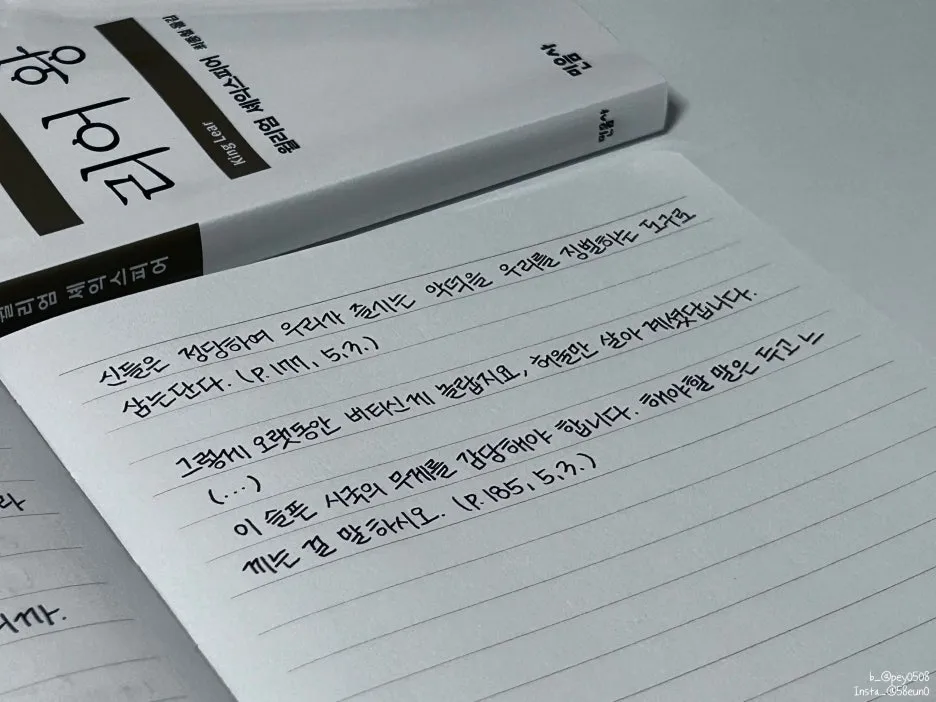 리어 왕
King Lear
윌리엄 셰익스피어
윌리엄 셰익스피어
신들은 정당하여 우리가 즐기는 악덕을 우리를 징벌하는 도구로
삼는단다. (P.177, 5.3.)
그렇게 오랫동안 버티신게 놀랍지요, 허울만 살아 계셨답니다.
(...)
이 슬픈 시국의 무게를 감당해야 합니다. 해야할 말은 두고 느
끼는 걸 말하시오. (P.185, 5.3.)
라
니까.
b_@pey0508
Insta_@58eun0